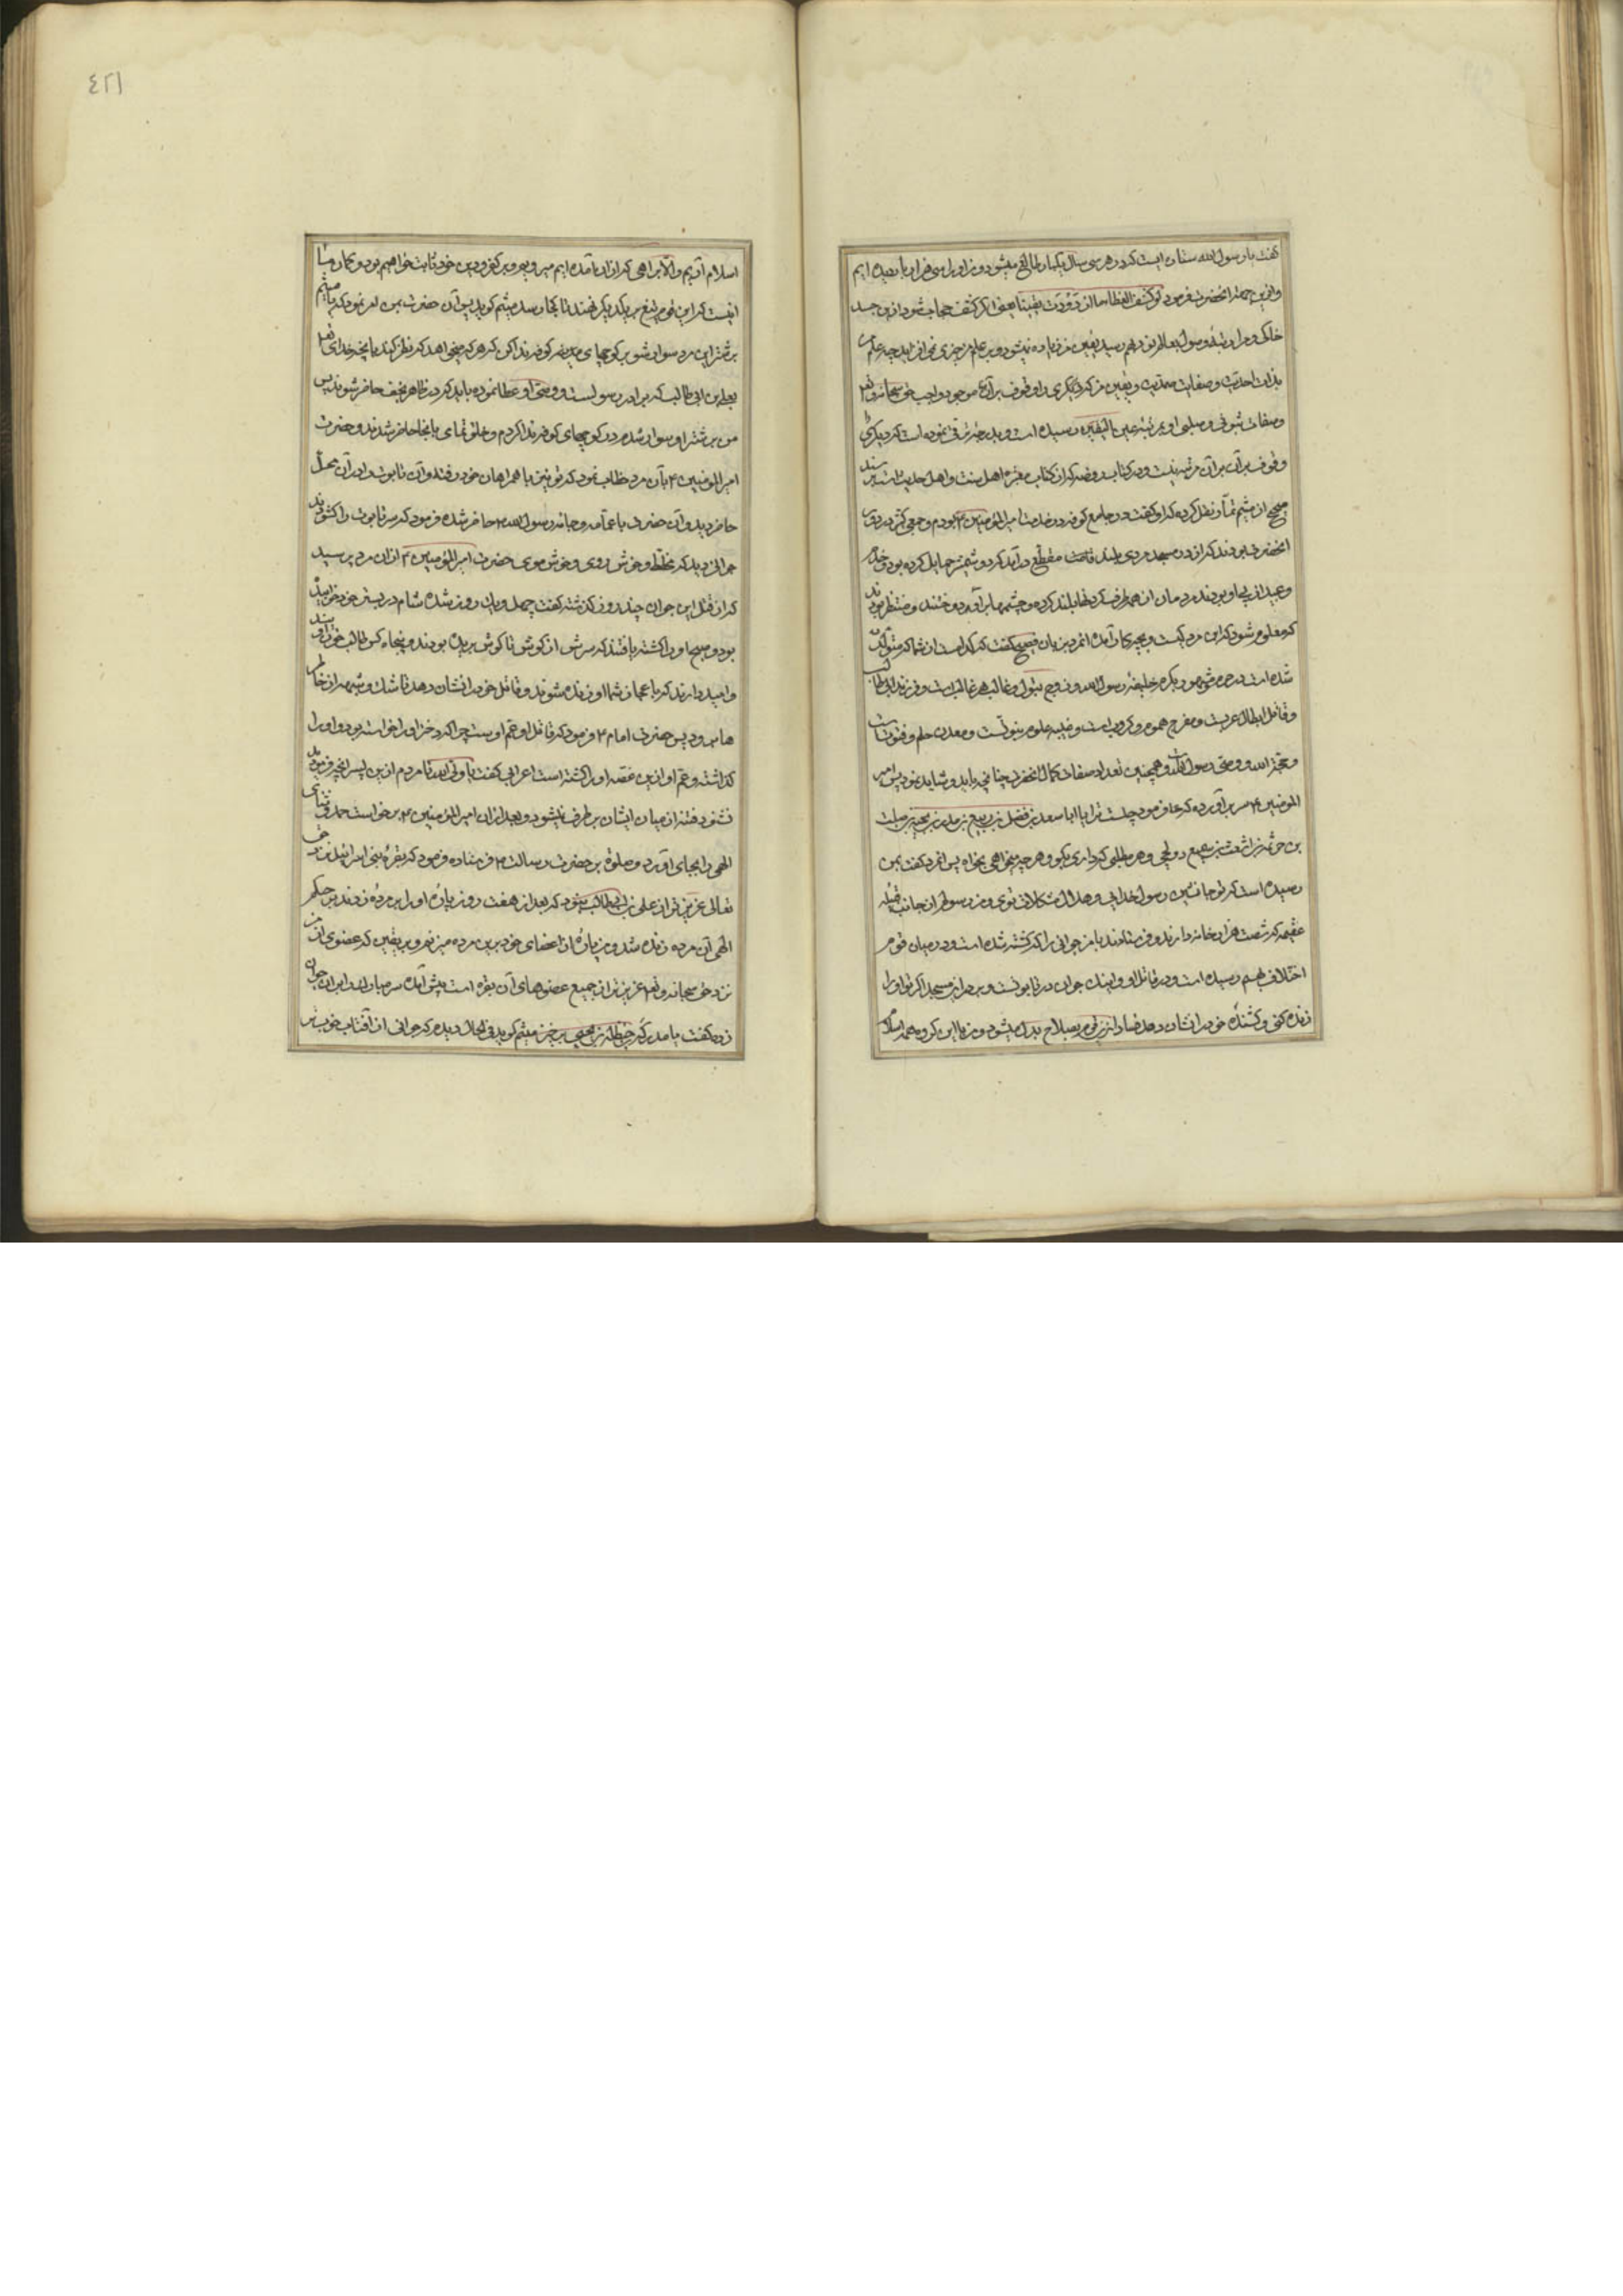 گفت یا رسول الله ستاره ایست که در هر سی سال یکبار طالع میشود و من او را سی هزار بار دیده ایم
و ازین جهت آنحضرت فرمود لو کشف الغطاء ما ازددت یقینا یعنی اگر کشف حجاب شود ازین جسد
خاکی و مرا رتبهٔ وصول بعالم نور بهم رسد یقین من زیاده نمیشود و بر علم من چیزی نمی افزاید چه علم من
بذات احدیت و صفات صمدیت و یقین من که دیگری را وقوف بر آن موجود واجب حق سبحانه و تعالی
و صفات ثبوتی و سلبی او بمرتبهٔ عین الیقین رسیده است و بدرجهٔ ترقی نموده است که دیگری را
وقوف بر آن بر آن مرتبه نیست و در کتاب روضه که از کتاب معتبرهٔ اهل سنت و اهل حدیث است بسند
صحیح از میثم تمار نقل کرده که او گفت در جامع کوفه در خدمت امیر المؤمنین ۴ بودم و جمعی کثیر در دور
آنحضرت بودند که از در مسجد مردی بلند قامت مقطع در آمد که دو شمشیر حمایل کرده بود و خدم
و عبید از پی او بودند مردمان از همه طرف گردنها بلند کرده و چشمها بر آورده دوختند و منتظر بودند
که معلوم شود که این مرد کیست و بچه کار آمده آنمرد بزبان فصیح گفت که کدامست از شما که متولد
شده است در حرم و خلیفه رسول الله و زوج بتول و غالب هر غالبست و فرزند ابی طالب
و قاتل ابطال عربست و مفرج هموم و کروب است و ضیه علوم نبوتست و معدن حلم و فتوتست
و حجة الله و وصی رسول الله و همچنین تعداد صفات کمال آنحضرت چنانچه باید و شاید نمود پس امیر
المؤمنین ۴ سر بر آورده که ها فرمود چیست ترا یا ابا سعد بن فضل بن ربیع بن مدرکه بن نجیبه بن صلت
بن حرثه بن اشعث بن سمیع دولجی و هر مطلبی که داری بگو و هر چه میخواهی بخواه پس آنمرد گفت بمن
رسیده است که تو جانشین رسول خدایی و حلال مشکلات توی و من رسولم از جانب قبیله
عقیمه که شصت هزار خانه دارند و فرستادند با من جوانی را که کشته شده است و در میان قوم
اختلاف بهم رسیده است و در قاتل او و اینک جوان در تابوتست و بر در این مسجد اگر تو او را
زنده کنی و کشندهٔ خود را نشان دهد فساد ازین قوم بصلاح بدل میشود و من با این گروه همه اسلام
اسلام آریم و الا براهی که از آن آمده ایم میرویم و بر کفر و دین خود ثابت خواهیم بود و گمان ما
اینست که این قوم تیغ بر یکدیگر نهند تا بکجا رسد میثم گوید پس آن حضرت بمن امر نمود که یا میثم
بر شتر این مرد سوار شو بر کوچهای کوفه ندا کن که هر که میخواهد که نظر کند بآنچه خدای تعالی
بعلی بن ابی طالب که برادر رسولست و وصی او عطا نموده باید که در ظاهر نجف حاضر شوند پس
من بر شتر او سوار شده در کوچهای کوفه ندا کردم و خلق تمامی بآنجا حاضر شدند و حضرت
امیر المؤمنین ۴ بآن مرد خطاب نمود که تو نیز با همراهان خود رفته و آن تابوت را در آن محل
حاضر دید و آن حضرت با عمامه و جامه رسول الله ۲ حاضر شده فرمود که سر تابوت را گشودند
جوانی دید که مخطط و خوش روی و خوش موی حضرت امیر المؤمنین ۴ از آن مرد پرسید
که از قتل این جوان چند روز گذشته گفت چهل و یک روز شده شام در بستر خود خوابیده
بود و صبح او را کشته یافتند که سرش از گوش تا گوش بریده بودند و پنجاه کس طالب خون اویند
و امید دارند که با عجاز شما او زنده شوند و قاتل خود را نشان دهد تا شک و شبهه از خاطر
هاس رود پس حضرت امام ۴ فرمود که قاتل او عم اوست چرا که دختر او را خواسته بود و او را
گذاشته و عم او ازین غصه او را کشته است اعرابی گفت یا ولی الله تا مردم ازین پسر آنچه فرمودید
نشنود فتنه از میان ایشان بر طرف نمیشود و بعد از آن امیر المؤمنین ۴ برخواست حمد و ثنای
الهی را بجای آورد و صلوة بر حضرت رسالت ۲ فرستاده فرمود که بقرهٔ بنی اسرائیل نزد حق
تعالی عزیزتر از علی بن ابی طالب نبود که بعد از هفت روز پارهٔ او را بر مرده زدند بحکم
الهی آن مرده زنده شد و من پارهٔ از اعضای خود برین مرده میزنم و بر یقین که عضوی از من
نزد حق سبحانه و تعالی عزیزتر از جمیع عضوهای آن بقره است پیش آمده سر مبارک را بر آن جوان
زده گفت یا مدرکه بن حنظله بن یحیی برخیز میثم گوید فی الحال دیدم که جوانی از آفتاب خوبتر
٤٢١